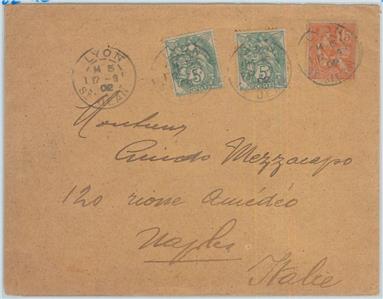 LYON
M 5
17 - 9
02
5
5
15
Monsieur
Guido Mezzacapo
120 rione Amédéo
Naples
Italie